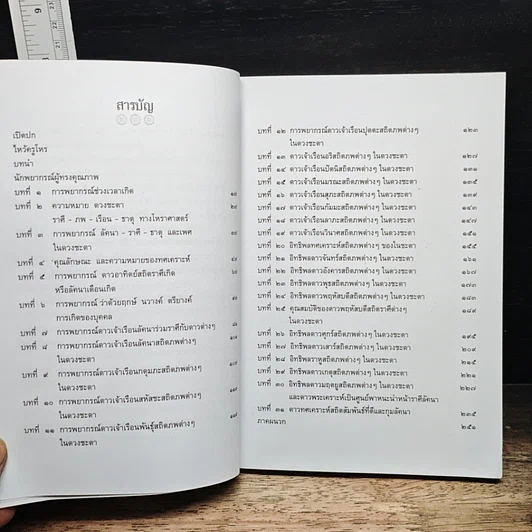 สารบัญ
เปิดปก
ไหว้ครูโหร
บทนำ
นักพยากรณ์ผู้ทรงคุณภาพ
บทที่ ๑ การพยากรณ์ช่วงเวลาเกิด
บทที่ ๒ ความหมาย ดวงชะตา
ราศี - ภพ - เรือน - ธาตุ ทางโหราศาสตร์
บทที่ ๓ การพยากรณ์ ลัคนา - ราศี - ธาตุ และเพศ
ในดวงชะตา
บทที่ ๔ คุณลักษณะ และความหมายของทศเคราะห์
บทที่ ๕ การพยากรณ์ ดาวอาทิตย์สถิตราศีเกิด
หรือลัคนาเดือนเกิด
บทที่ ๖ การพยากรณ์ ว่าด้วยฤกษ์ นวางค์ ตรียางค์
การเกิดของบุคคล
บทที่ ๗ การพยากรณ์ดาวเจ้าเรือนลัคนาร่วมราศีกับดาวต่างๆ
บทที่ ๘ การพยากรณ์ดาวเจ้าเรือนลัคนาสถิตภพต่างๆ
ในดวงชะตา
บทที่ ๙ การพยากรณ์ดาวเจ้าเรือนกดุมภะสถิตภพต่างๆ
ในดวงชะตา
บทที่ ๑๐ การพยากรณ์ดาวเจ้าเรือนสหัชชะสถิตภพต่างๆ
ในดวงชะตา
บทที่ ๑๑ การพยากรณ์ดาวเจ้าเรือนพันธุ์สถิตภพต่างๆ
ในดวงชะตา
บทที่ ๑๒ การพยากรณ์ดาวเจ้าเรือนปุตตะสถิตภพต่างๆ ๑๒๓
ในดวงชะตา
บทที่ ๑๓ ดาวเจ้าเรือนอริสถิตภพต่างๆ ในดวงชะตา ๑๒๗
บทที่ ๑๔ ดาวเจ้าเรือนปัตนิสถิตภพต่างๆ ในดวงชะตา ๑๓๑
บทที่ ๑๕ ดาวเจ้าเรือนมรณะสถิตภพต่างๆ ในดวงชะตา ๑๓๕
บทที่ ๑๖ ดาวเจ้าเรือนศุภะสถิตภพต่างๆ ในดวงชะตา ๑๓๙
บทที่ ๑๗ ดาวเจ้าเรือนกัมมะสถิตภพต่างๆ ในดวงชะตา ๑๔๓
บทที่ ๑๘ ดาวเจ้าเรือนลาภะสถิตภพต่างๆ ในดวงชะตา ๑๔๗
บทที่ ๑๙ ดาวเจ้าเรือนวินาศสถิตภพต่างๆ ในดวงชะตา ๑๕๑
บทที่ ๒๐ อิทธิพลทศเคราะห์สถิตภพต่างๆ ของในชะตา ๑๕๕
บทที่ ๒๑ อิทธิพลดาวจันทร์สถิตภพต่างๆ ในดวงชะตา ๑๖๑
บทที่ ๒๒ อิทธิพลดาวอังคารสถิตภพต่างๆ ในดวงชะตา ๑๖๗
บทที่ ๒๓ อิทธิพลดาวพุธสถิตภพต่างๆ ในดวงชะตา ๑๗๓
บทที่ ๒๔ อิทธิพลดาวพฤหัสบดีสถิตภพต่างๆ ในดวงชะตา ๑๘๓
บทที่ ๒๕ คุณสมบัติของดาวพฤหัสบดีสถิตราศีต่างๆ ๑๘๙
ในดวงชะตา
บทที่ ๒๖ อิทธิพลดาวศุกร์สถิตภพต่างๆ ในดวงชะตา ๑๙๕
บทที่ ๒๗ อิทธิพลดาวเสาร์สถิตภพต่างๆ ในดวงชะตา ๒๐๙
บทที่ ๒๘ อิทธิพลราหูสถิตภพต่างๆ ในดวงชะตา ๒๑๕
บทที่ ๒๙ อิทธิพลดาวเกตุสถิตภพต่างๆ ในดวงชะตา ๒๒๑
บทที่ ๓๐ อิทธิพลดาวมฤตยูสถิตภพต่างๆ ในดวงชะตา ๒๒๗
และดาวพระเคราะห์เป็นศูนย์พาหะนะนำหน้าราศีลัคนา
บทที่ ๓๑ ดาวทศเคราะห์สถิตสัมพันธ์ที่ดีและกุมลัคนา ๒๓๕
ภาคผนวก ๒๕๑